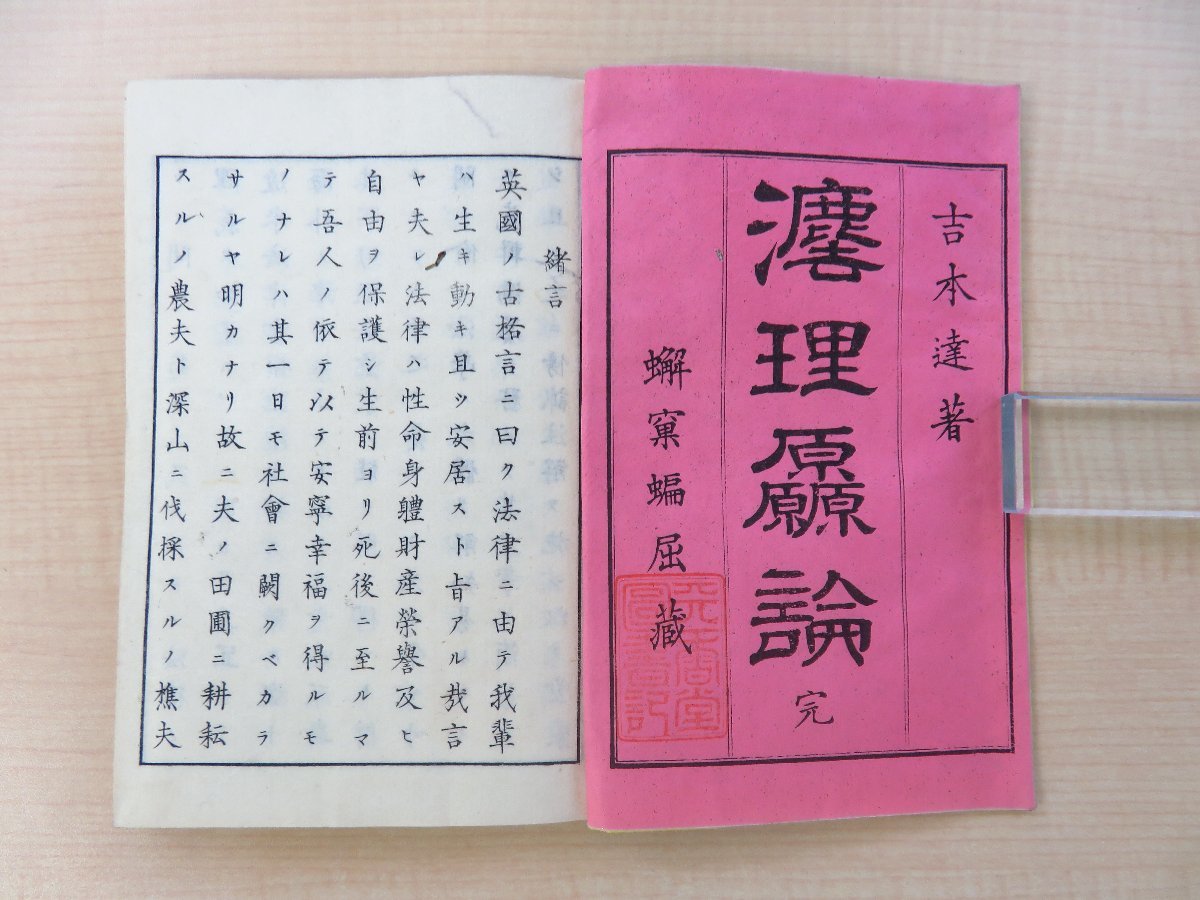 吉本達著
灋理厵論 完
蠏窠蝙屈藏
緒言
英國ノ古格言ニ曰ク法律ニ由テ我輩
ハ生キ動キ且ツ安居スト旨アル哉言
ヤ夫レ法律ハ性命身體財産榮譽及ヒ
自由ヲ保護シ生前ヨリ死後ニ至ルマ
テ吾人ノ依テ以テ安寧幸福ヲ得ルモ
ノナレハ其一日モ社會ニ闕クベカラ
サルヤ明カナリ故ニ夫ノ田圃ニ耕耘
スルノ農夫ト深山ニ伐採スルノ樵夫